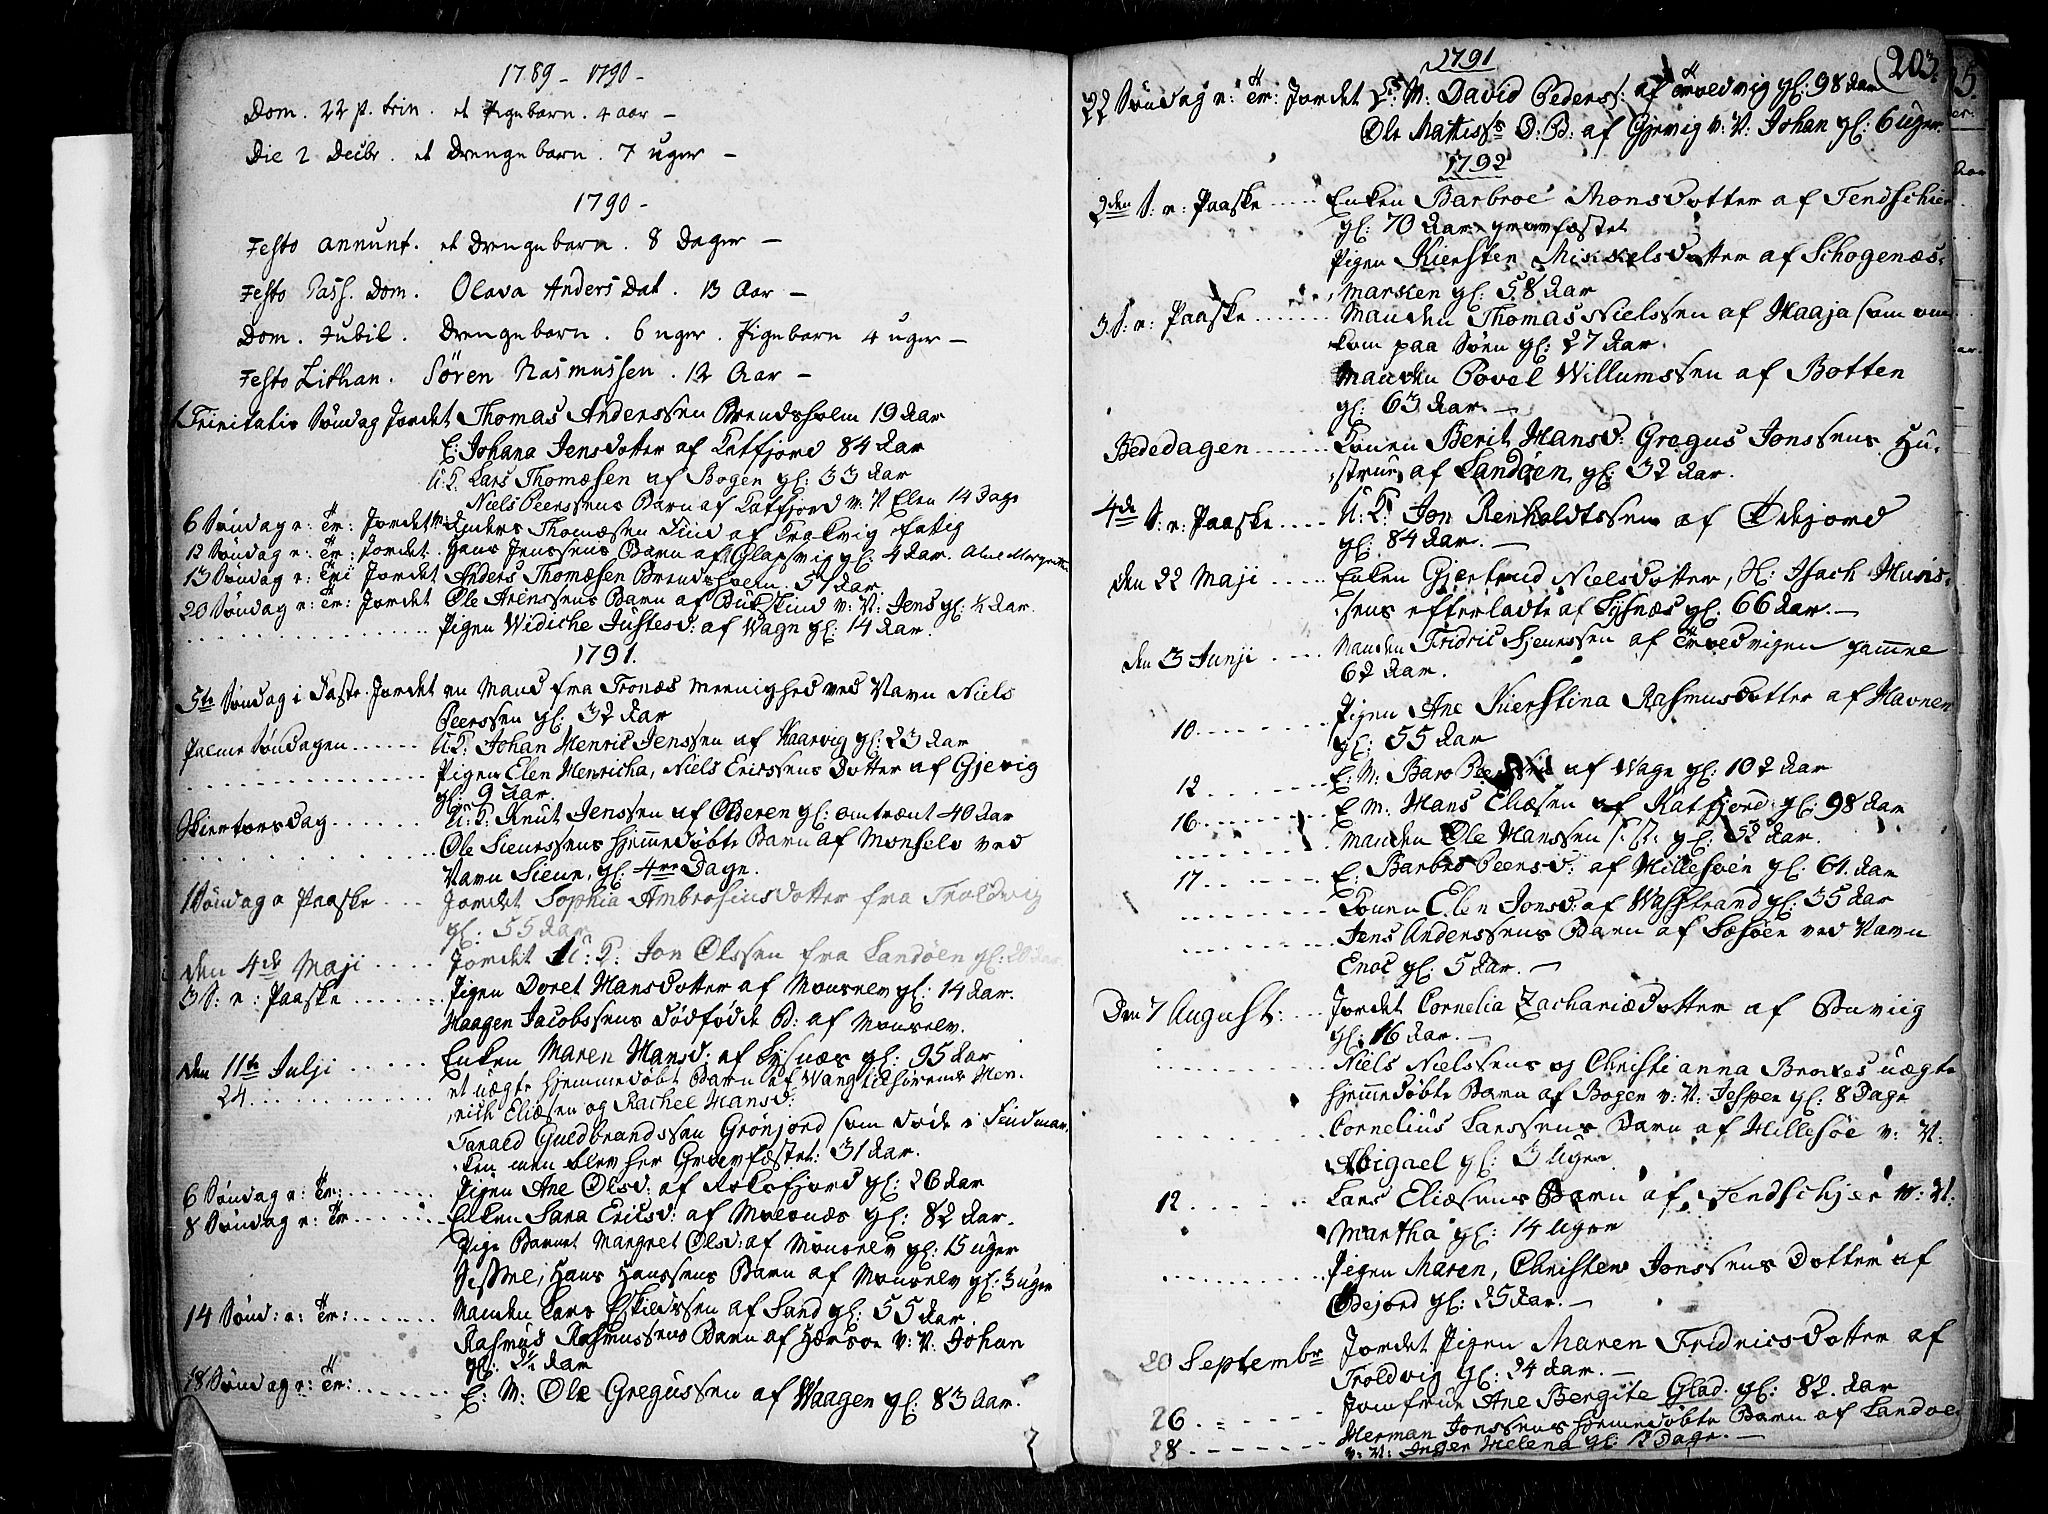 1789 - 1790 -
Dom. 22 p. trin. et Pigebarn. 4 aar -
Die 2 Decbr. et Drengebarn. 7 uger -
1790 -
Festo annunt. et Drengebarn. 8 Dager -
Festo Pass. Dom. Olava Anders Dat. 13 Aar -
Dom. Jubil. Drengebarn. 6 uger. Pigebarn 4 uger -
Festo Søren Rasmussen. 12 Aar -
Trinitatis Søndag Jordet Thomas Anderssen Brendsholm 19 Aar
E: Johana Jensdotter af Katfjord 84 Aar
U:K: Lars Thomæsen af Bogen gl: 33 Aar
Niels Peerssens Barn af Katfjord v: N Elen 14 Dage
6 Søndag e: Tr: Jordet Anders Thomæsen Find af Trakvig fatig
12 Søndag e: Tr: Jordet. Hans Jenssens Barn af Olapsvig gl: 4 Aar.
13 Søndag e: Tri Jordet Anders Thomæsen Brendsholm. 51 Aar.
20 Søndag e: Tr: Jordet Ole Arenssens Barn af Buskind v: N: Jens gl: 1/2 Aar.
Pigen Widiche Justesd: af Vagn gl: 14 Aar.
1791.
5te Søndag i Faste. Jordet en Mand fra Tronæs Meenighed ved Navn Niels
Peerssen gl: 32 Aar
Palme Søndagen ...... U:K: Johan Henric Jenssen af Kaarvig gl: 23 Aar
Pigen Elen Henricha, Niels Ericssens Dotter af Gjevig
gl: 9 Aar.
Skiertorsdag ...... U:K: Knut Jenssen af Olderen gl: omtrænt 40 Aar
Ole Sieurssens hjemmedøbte Barn af Monselv ved
Navn Sieur, gl: 4re Dage.
1 Søndag e Paaske ... Jordet Sophia Ambrosius Dotter fra Troldvig
gl: 55 Aar
den 4de Maji .... Jordet U:K: Jon Olssen fra Sandøen gl: 20 Aar
3 S: e: Paaske ....... Pigen Doret Hansdotter af Monselv gl: 14 Aar.
Haagen Jacobssens Dødfødde B: af Monselv.
den 11te Julji ...... Enken Maren Hansd: af Lysnæs gl: 95 Aar
24 ............. et uægte hjemmedøbt Barn af Wang Men-
rich Eliæsen og Rachel Hansd:
Tarald Guldbrandssen Grønjord som døde i Findmar-
ken men blev her Gravfæstet: 31 Aar.
6 Søndag e: Tr: ....... Pigen Ane Olsd: af Rolsfjord gl: 26 Aar
8 Søndag e: Tr ....... Enken Sara Ericsd: af Malsnæs gl: 82 Aar.
Pige Barnet Margret Olsd: af Monselv gl: 15 uger
Hans Hanssens Barn af Monselv gl: 3 uger
14 Sønd: e: Tr: ...... Manden Lars Eskildssen af Sand gl: 55 Aar.
Rasmus Rasmussens Barn af Hærsøe v: N: Johan
gl: 2 1/2 Aar
18 Søndag e: Tr: ...... E: M: Ole Gregussen af Waagen gl: 83 Aar.
1791
203.
22 Søndag e: Tr: Jordet E: M: David Pederss: af Trædvig gl: 98 Aar
Ole Matiss D: B: af Gjevig v: N: Johan gl: 6 uger
1792
2den S: e: Paaske ..... Enken Barbroe Monsdotter af Tendschier
gl: 70 Aar gravfæstet
Pigen Kiersten Mickelsdotter af Schogenæs-
marken gl: 58 Aar
3 S: e: Paaske ....... Manden Thomas Nielssen af Haaja som om
kom paa Søen gl: 27 Aar.
Manden Povel Willumssen af Botten
gl: 63 Aar. -
Bededagen ...... Konen Berit Hansd: Gregus Jonssens Hu-
strue af Sandøen gl: 32 Aar.
4de S: e: Paaske .... U:K: Jon Renholdtssen af Ødejord
gl: 84 Aar. -
den 22 Maji ..... Enken Gjertrud Nielsdotter, H: Isach Huus-
sens efterladte af Lysnæs gl. 66 Aar. -
den 3 Junji .... Manden Fridric Sjeurssen af Trædvigen gamme
62 Aar.
10 ....... Pigen Ane Kierstina Rasmusdotter af Havnen
gl: 55 Aar
12 ....... E: M: Baro af Wage gl: 102 Aar
16 ....... E M: Hans Eliæsen af Katfjord gl: 98 Aar
Manden Ole Hanssen gl: 52 Aar.
17 ....... E: Barbro Peersd: af Hillesøen gl: 61. Aar
Konen Elen Jonsd: af Wasstrand gl: 35 Aar
Jens Anderssens Barn af Sæsøen ved Navn
Enoc gl: 5 Aar. -
Den 7 August: ... Jordet Cornelia Zachariædotter af Buvig
gl: 16 Aar. -
Niels Nielssens og Christianna Brockes uægte
hjemmedøbte Barn af Bogen v: N: Jesper gl: 8 Dage
Cornelius Larssens Barn af Hillesøe v: N:
Abigael gl: 3 Uger
12 ..... Lars Eliæsens Barn af Tendschjer v: N:
Martha gl: 14 Uger
Pigen Maren, Christen Jonssens Dotter af
Ødejord gl: 25 Aar. -
20 Septembr Jordet Pigen Maren Fridricsdotter af
Troldvig gl: 24 Aar. -
26 ....... Jomfrue Ane Bergite Glad. gl: 82. Aar
28 ....... Herman Jonssens hjemmedøbte Barn af Sandøe
v: N: Inger Helena gl: 12 Dage. -